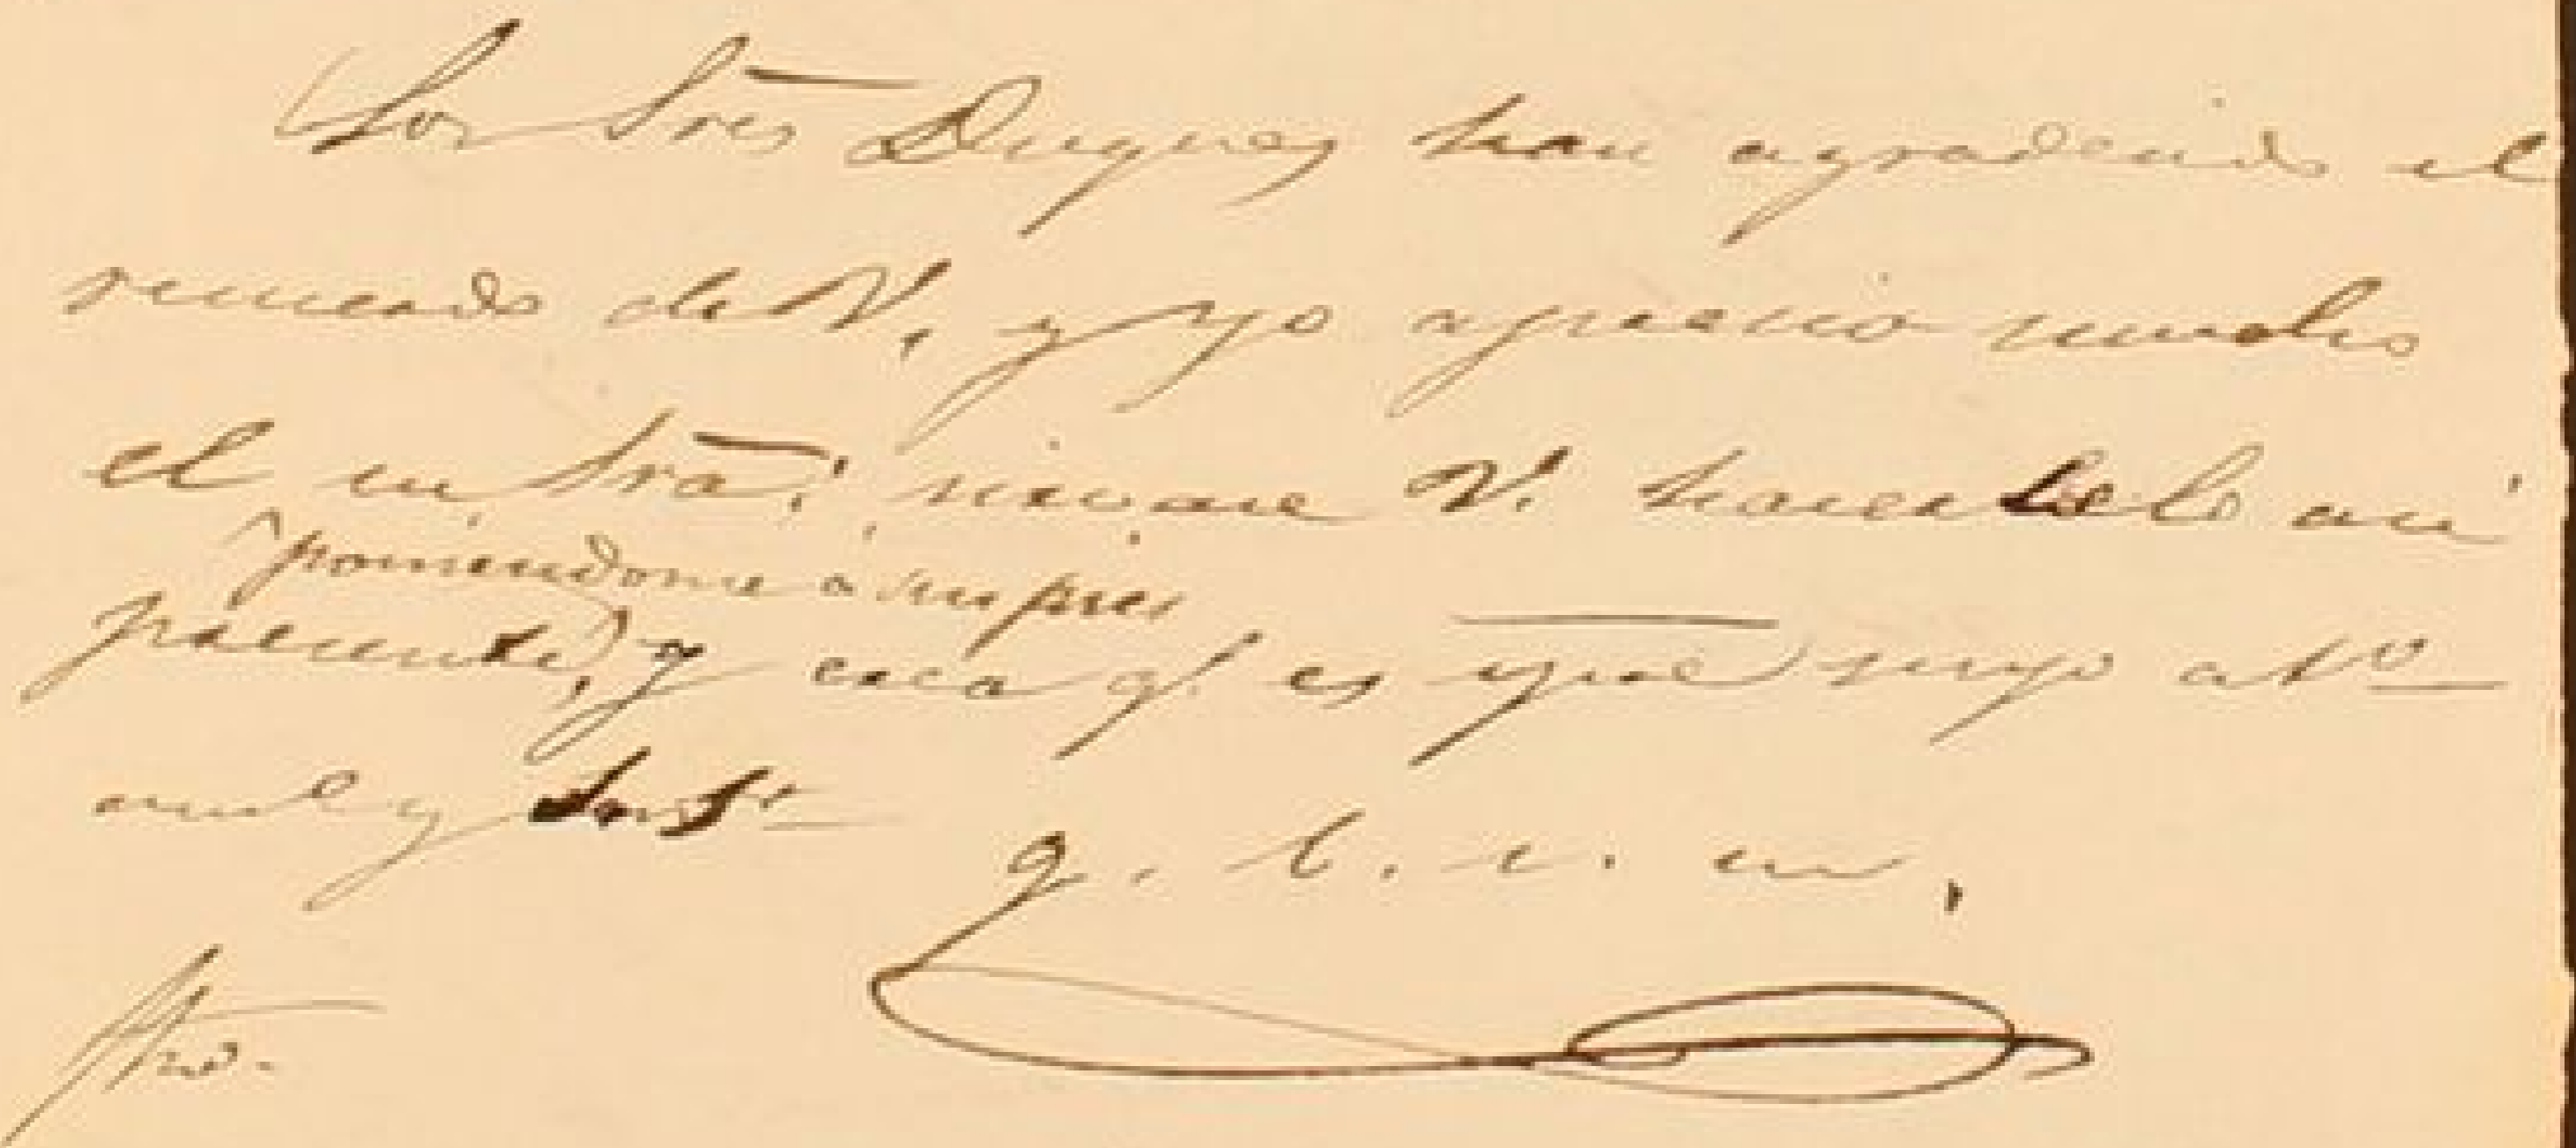 Los Sres Duques han agradecido el
recuerdo de V., y yo aprecio mucho
el de su Sra; sirvase V. hacerselo así
poniendome à sus pies
presente, y crea q.e es siempre suyo at.o
am.o y
q. b. s. m.